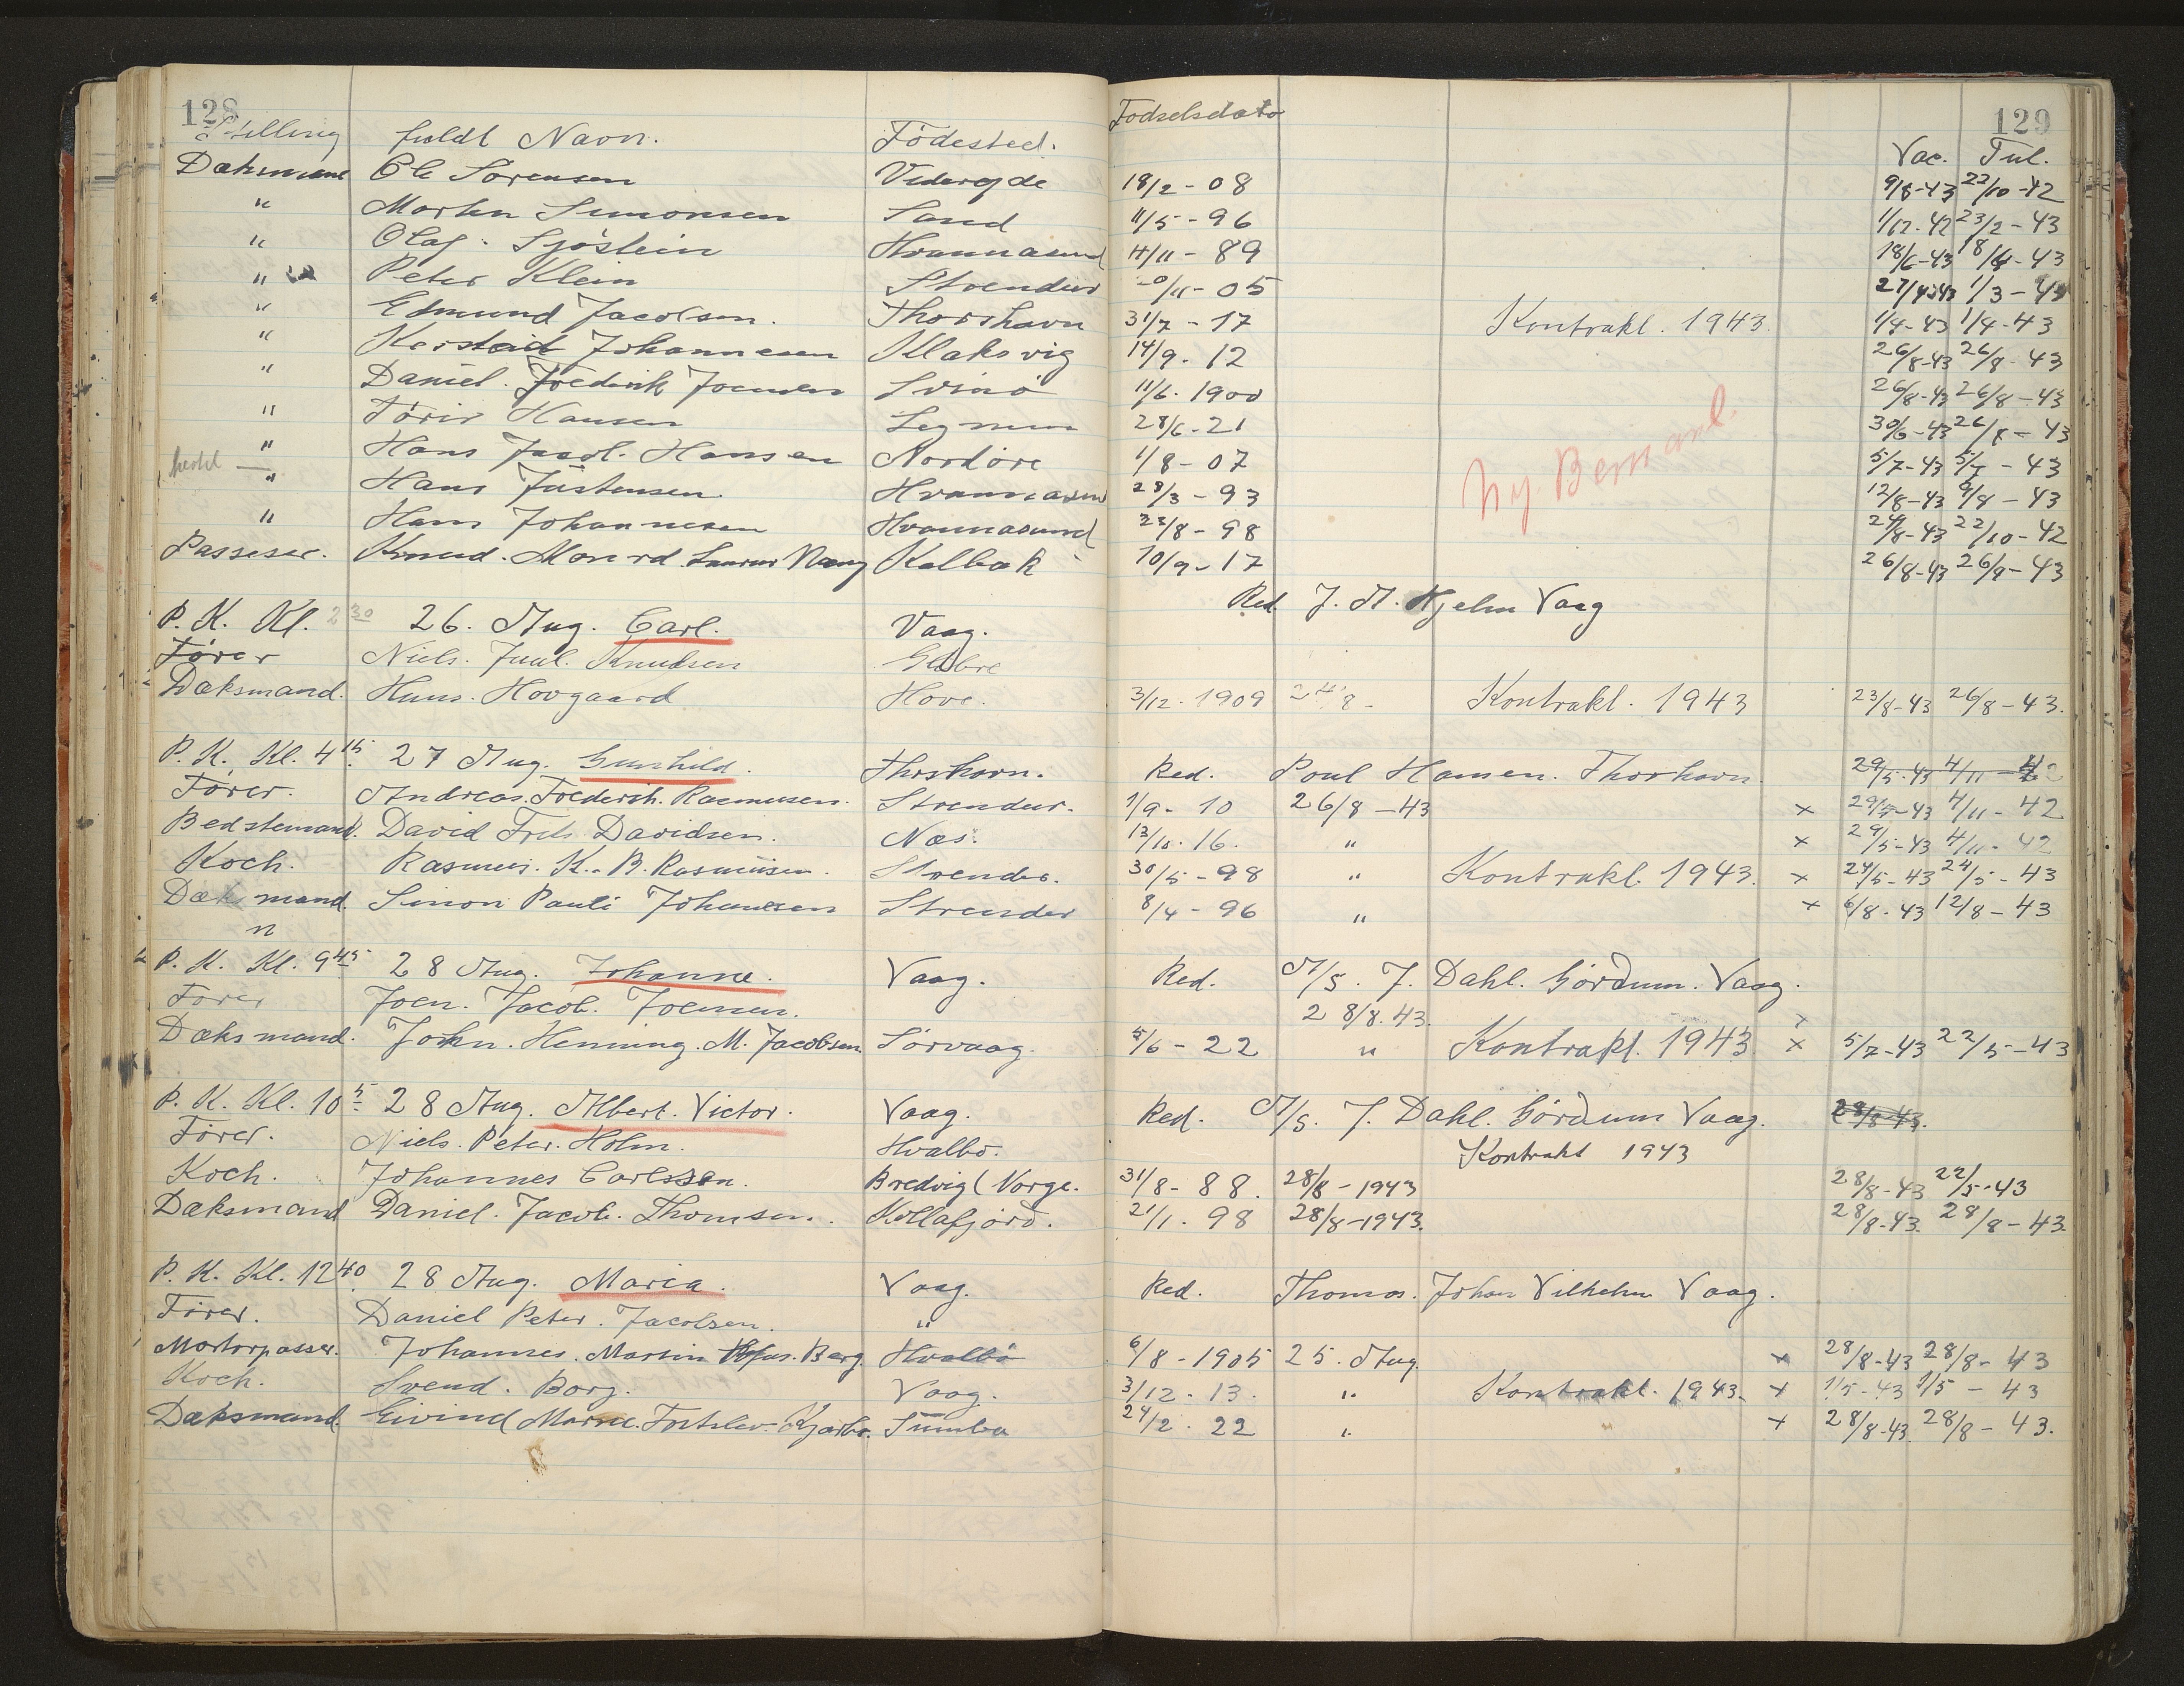 128 129
Stilling fuldt Navn. Födested. Fodselsdato Vac. Tul.
Dæksmand Ole Sörensen Videregde 18/2 - 08 9/8-43 22/10-42
" Morten Simonsen Sand 11/5 - 96 1/12-42 23/2-43
" Olaf. Sjöstein Hvannasund 4/11 - 89 18/6-43 18/6-43
" Peter Klein Strendur /11 - 05 27/4-43 1/3-43
" Edmund Jacobsen. Thorshavn 31/7 - 17 Kontrakt. 1943. 1/4-43 1/4-43
" Johannesen Klaksvig 14/9. 12 26/8-43 26/8-43
" Daniel. Frederik Joensen Svinö 11/6. 1900 26/8-43 26/8-43
" Hansen 28/6-21 30/6-43 26/8-43
" Hans Jacob. Hansen Nordöre 1/8-07 5/7-43 5/7-43
" Hans Justensen. Hvannasund 28/3-93 12/8-43 9/8-43
Ny Bemand.
" Hans Johannesen Hvannasund /8-98 24/8-43 22/10-42
Passeser. Knud. Kalbak 10/9-17 26/8-43 26/8-43
P. K. Kl. 2 30 26. Aug. Carl. Vaag. Red. J. M. Hjelm Vaag
Förer Niels. Juul. Knudsen
Dæksmand. Hans. Hovgaard Hove. 3/12. 1909 24/8- Kontrakt. 1943 23/8-43 26/8-43.
P. K. Kl. 4 15. 27 Aug. Gunhild. Thorshavn. Red. Poul Hansen. Thorshavn. 29/5-43 4/11-42
Förer. Andreas. Frederik. Rasmussen. Strendur. 1/9-10 26/8-43 x 29/5-43 4/11-42
Bedstemand. David Frits Davidsen. Næs. 13/10. 16. " x 29/5-43 4/11-42
Koch. Rasmus. K. B. Rasmussen. Strender. 30/5-98 " Kontrakt. 1943. x 24/5-43 24/5-43
Dæksmand Simon Pauli Johansen Strender 8/4-96 " x 6/8-43 12/8-43
"
P. K. Kl. 9 45 28 Aug. Johanne. Vaag. Red. A/S. J. Dahl. Gördum. Vaag.
Förer Joen. Jacob. Joensen. 28/8.43. x
Dæksmand. John. Henning. M. Jacobsen. Sörvaag. 5/6-22 " Kontrakt. 1943 x 5/7-43 22/5-43
P. K. Kl. 10 5 28 Aug. Albert. Victor. Vaag. Red. A/S. J. Dahl. Gördum Vaag. 28/8-43.
Förer. Niels. Peter. Holm. Hvalbö. Kontrakt 1943
Koch. Johannes Carlssen. Bredvig (Norge. 31/8-88. 28/8-1943 28/8-43 22/5-43
Dæksmand Daniel. Jacob. Thomsen. Kollafjord. 21/1. 98 28/8-1943. 28/8-43. 28/8-43.
P. K. Kl. 12 40. 28 Aug. Maria. Vaag. Red. Thomas. Johan Vilhelm Vaag.
Förer. Daniel Peter. Jacobsen. "
Mortorpasser. Johannes. Martin Berg. Hvalbö 6/8-1905 25. Aug. x 28/8-43 28/8-43
Koch. Svend. Borg. Vaag. 3/12-13. " Kontrakt. 1943. x 1/5-43 1/5-43
Dæksmand. Eivind Kjærbo. Sumba 24/2. 22 " x 28/8-43. 28/8-43.